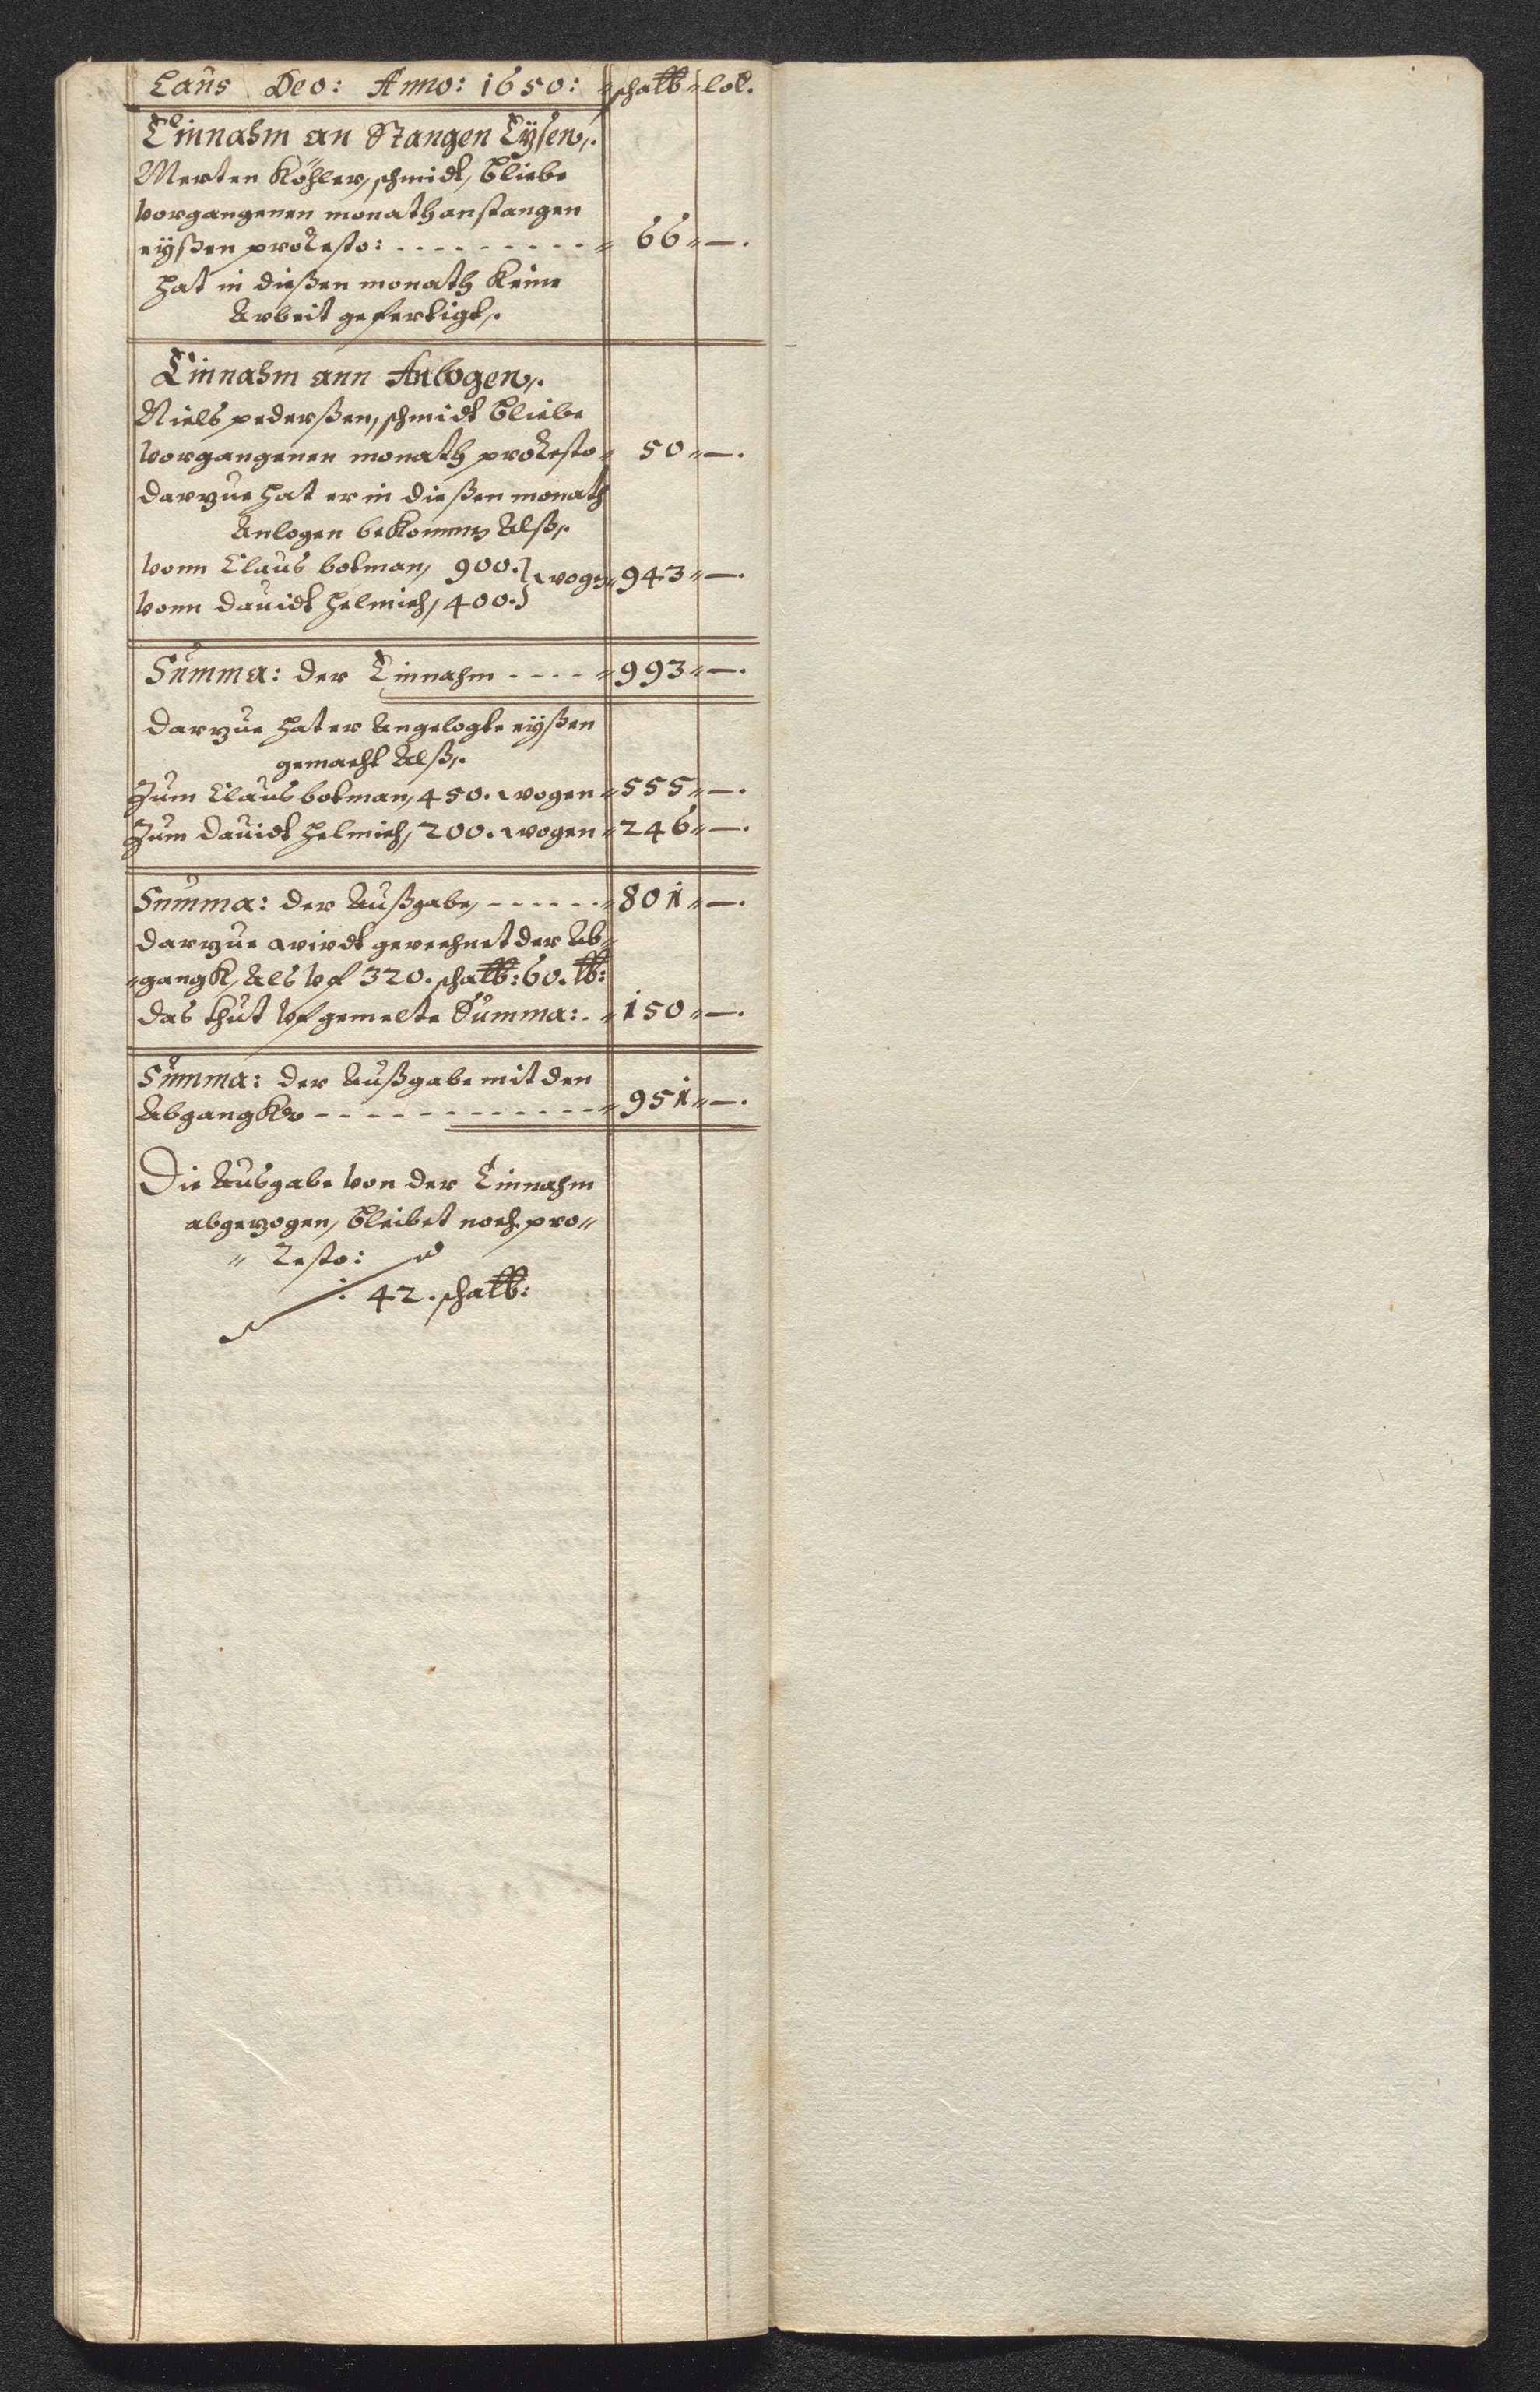 Laus Deo: Anno: 1650: " schalb " lod.
Einnahm an Stangen Eysen,.
Merten Köhler, schmidt, bliebe
vorgangenen monath an stangen
eyßen pro Resto: - - - - - - - - - " 66 " —.
hat in dießen monath keine
Arbeit gefertigt,.
Einnahm ann Anlogen,.
Niels pederßen, schmidt bliebe
vorgangenen monath pro Resto " 50 " —.
darzue hat er in dießen monath
Anlogen bekommen Alß,.
vonn Claus botman, 900. } wogen " 943 " —.
vonn dauidt helmich, 400. }
Summa: der Einnahm - - - - " 993 " —.
darzue hat er Angelogte eyßen
gemacht Alß,.
Zum Claus botman, 450. wogen " 555 " —.
Zum dauidt helmich, 200. wogen " 246 " —.
Summa: der Außgabe, - - - - - - " 801 " —.
darzue wirdt gerechnet der Ab"
"gangk, Als vf 320. schalb: 60. lb:
das thut vf gemelte Summa: - " 150 " —.
Summa: der Außgabe mit den
Abgangke - - - - - - - - - - - - " 951 " —.
Die Ausgabe von der Einnahm
abgezogen, bleibet noch pro"
" Resto:
: 42. schalb: